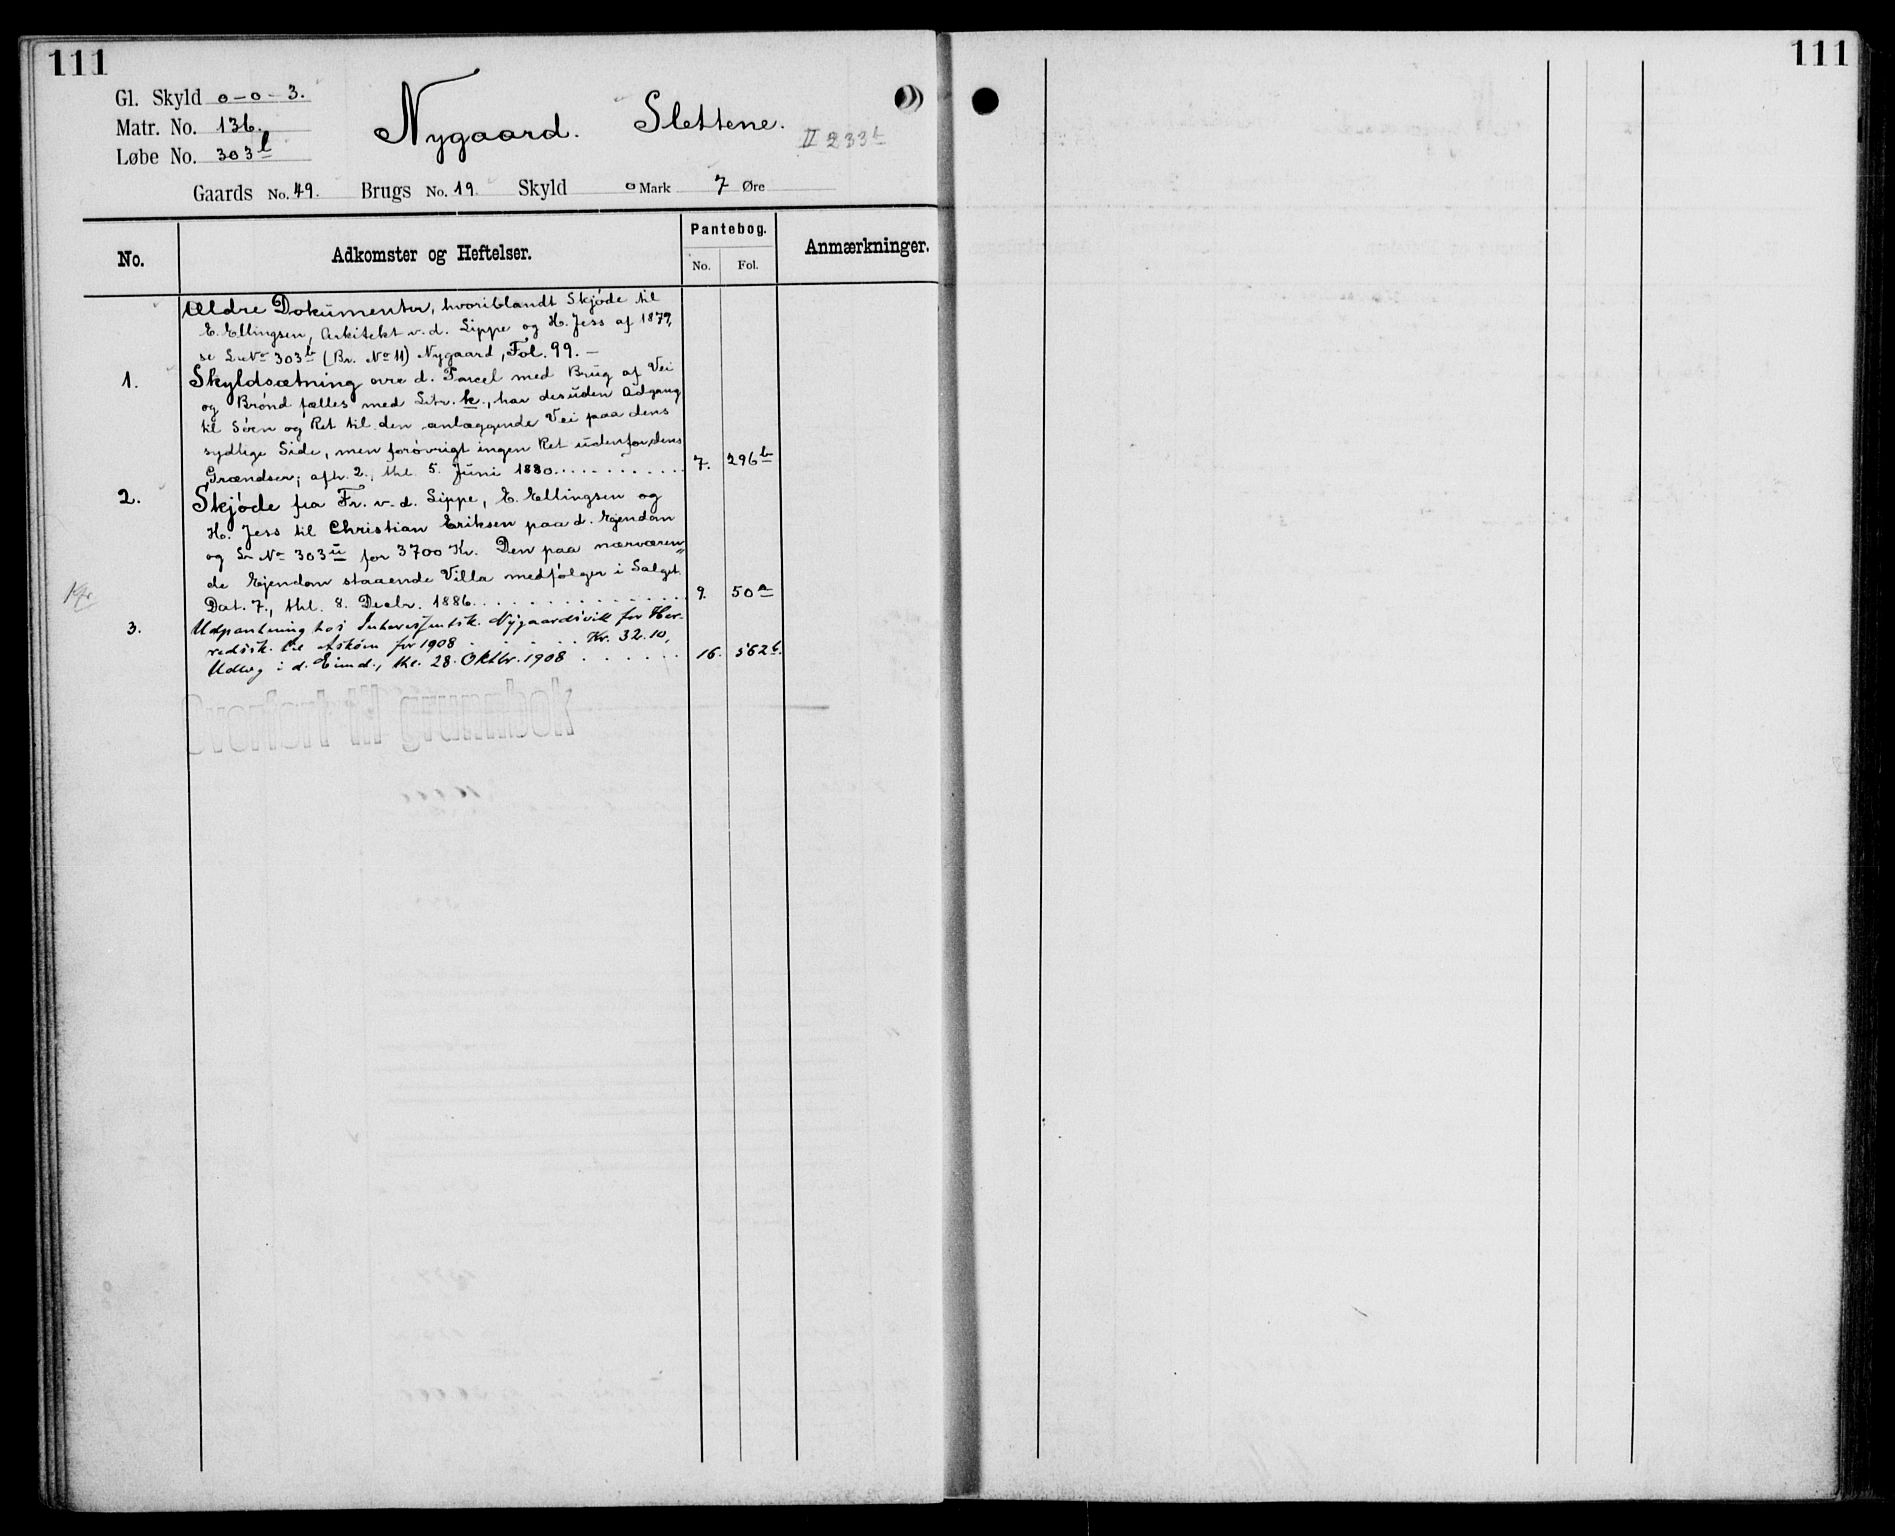 111
111
Gl. Skyld 0-0-3.
Matr. No. 136.
Løbe No. 303 l
Nygaard. Slettene.
II 233 b
Gaards No. 49. Brugs No. 19. Skyld 0 Mark 7 Øre
No. Adkomster og Heftelser. Pantebog. Anmærkninger.
No. Fol.
Ældre Dokumenter, hvoriblandt Skjøde til
E. Ellingsen, Arkitekt v. d. Lippe og H. Jess af 1879,
se L No 303 b (Br. No 11) Nygaard, Fol. 99. –
1. Skyldsætning over d. Parcel med Brug af Vei
og Brønd fælles med Litr. k., har desuden Adgang
til Søen og Ret til den anlæggende Vei paa dens
sydlige Side, men forøvrigt ingen Ret udenfor dens
Grændser; afh. 2., thl. 5. Juni 1880........... 7. 296 b
2. Skjøde fra Fr. v. d. Lippe, E. Ellingsen og
H. Jess til Christian Eriksen paa d. Ejendom
og L No 303 u for 3700 Kr. Den paa nærværen„
de Ejendom staaende Villa medfølger i Salget.
Dat. 7., thl. 8. Decbr. 1886............... 9. 50 a
3. Udpantning hos Nygaardsvik for Her-
redssk. til Askøen for 1908 ...... Kr. 32.10,
Udlæg i d. Eiend., thl. 28. Oktbr. 1908 ...... 16. 562 b.
Overført til grunnbok